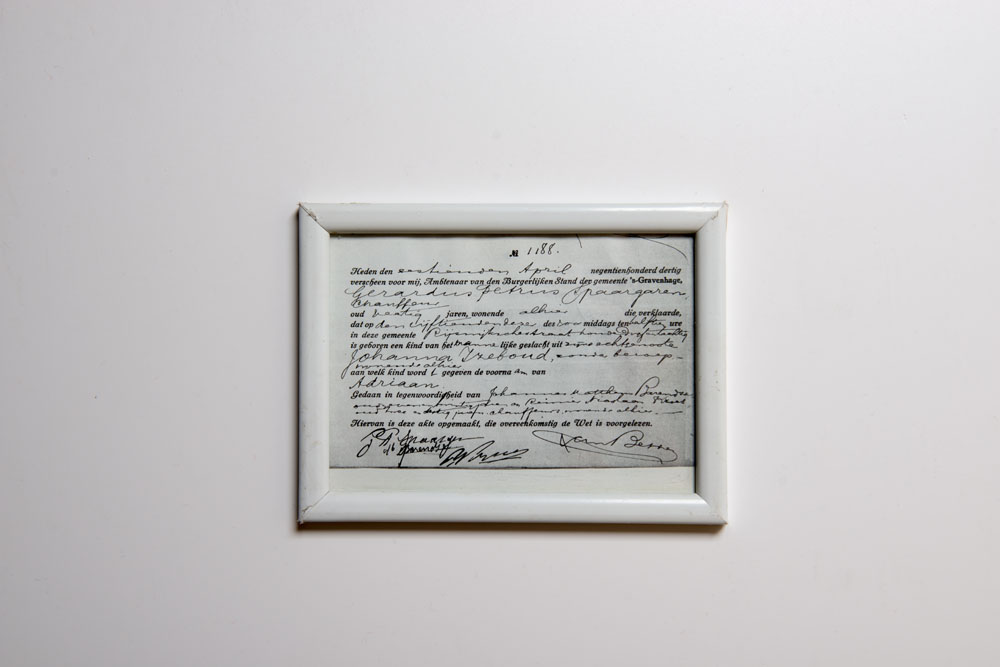 № 1188.
Heden den zestienden April negentienhonderd dertig
verscheen voor mij, Ambtenaar van den Burgerlijken Stand der gemeente 's-Gravenhage,
Gerardus Petrus Spaargaren,
chauffeur
oud veertig jaren, wonende alhier die verklaarde,
dat op den vijftienden dezer des voor middags ten half tien ure
in deze gemeente Rijswijkschestraat honderd
is geboren een kind van het mannelijke geslacht uit zijne echtgenoote
Johanna IJzeboud, zonder beroep
wonende alhier
aan welk kind word t gegeven de voorna am van
Adriaan.
Gedaan in tegenwoordigheid van Johannes Barendse
oud en
oud twee en dertig jaren, chauffeurs, wonende alhier.
Hiervan is deze akte opgemaakt, die overeenkomstig de Wet is voorgelezen.
G P Spaargaren
Barendse